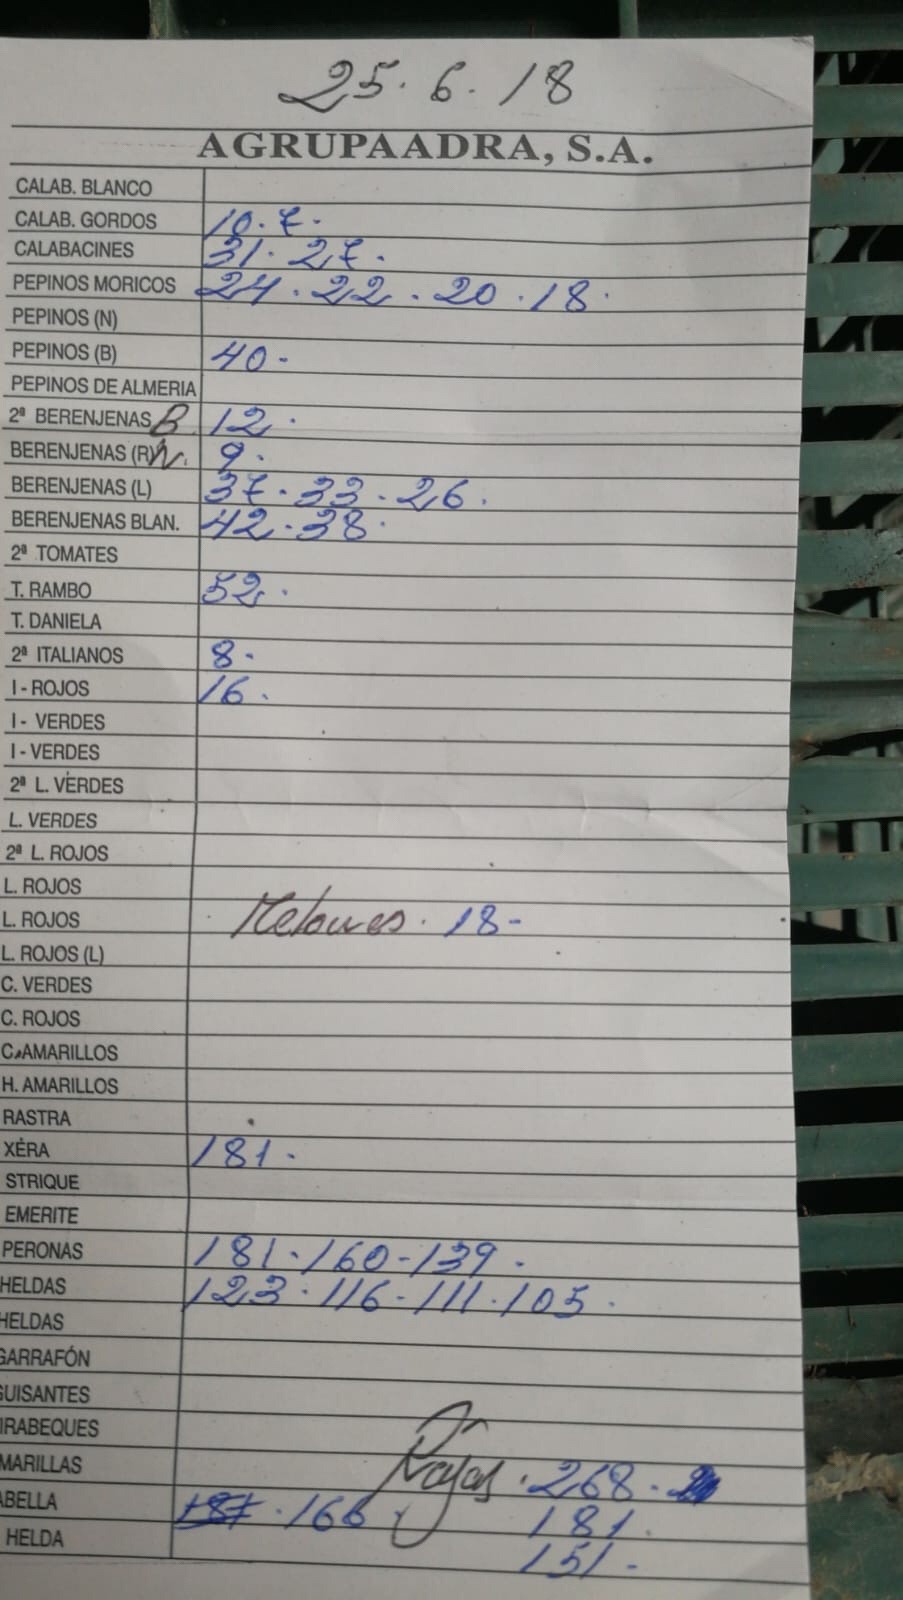 25.6.18
AGRUPAADRA, S.A.
CALAB. BLANCO
CALAB. GORDOS 10.7.
CALABACINES 31.27.
PEPINOS MORICOS 24.22.20.18.
PEPINOS (N)
PEPINOS (B) 40-
PEPINOS DE ALMERIA
2ª BERENJENAS B 12.
BERENJENAS (R) N. 9.
BERENJENAS (L) 37.33.26.
BERENJENAS BLAN. 42.38.
2ª TOMATES
T. RAMBO 52.
T. DANIELA
2ª ITALIANOS 8-
I - ROJOS 16.
I - VERDES
I - VERDES
2ª L. VERDES
L. VERDES
2ª L. ROJOS
L. ROJOS
L. ROJOS Melones. 18-
L. ROJOS (L)
C. VERDES
C. ROJOS
C. AMARILLOS
H. AMARILLOS
RASTRA
XÉRA 181.
STRIQUE
EMERITE
PERONAS 181.160-139.
HELDAS 123.116-111.105.
HELDAS
GARRAFÓN
GUISANTES
IRABEQUES
MARILLAS Rojas.268.
ABELLA 187.166 181.
HELDA 151-